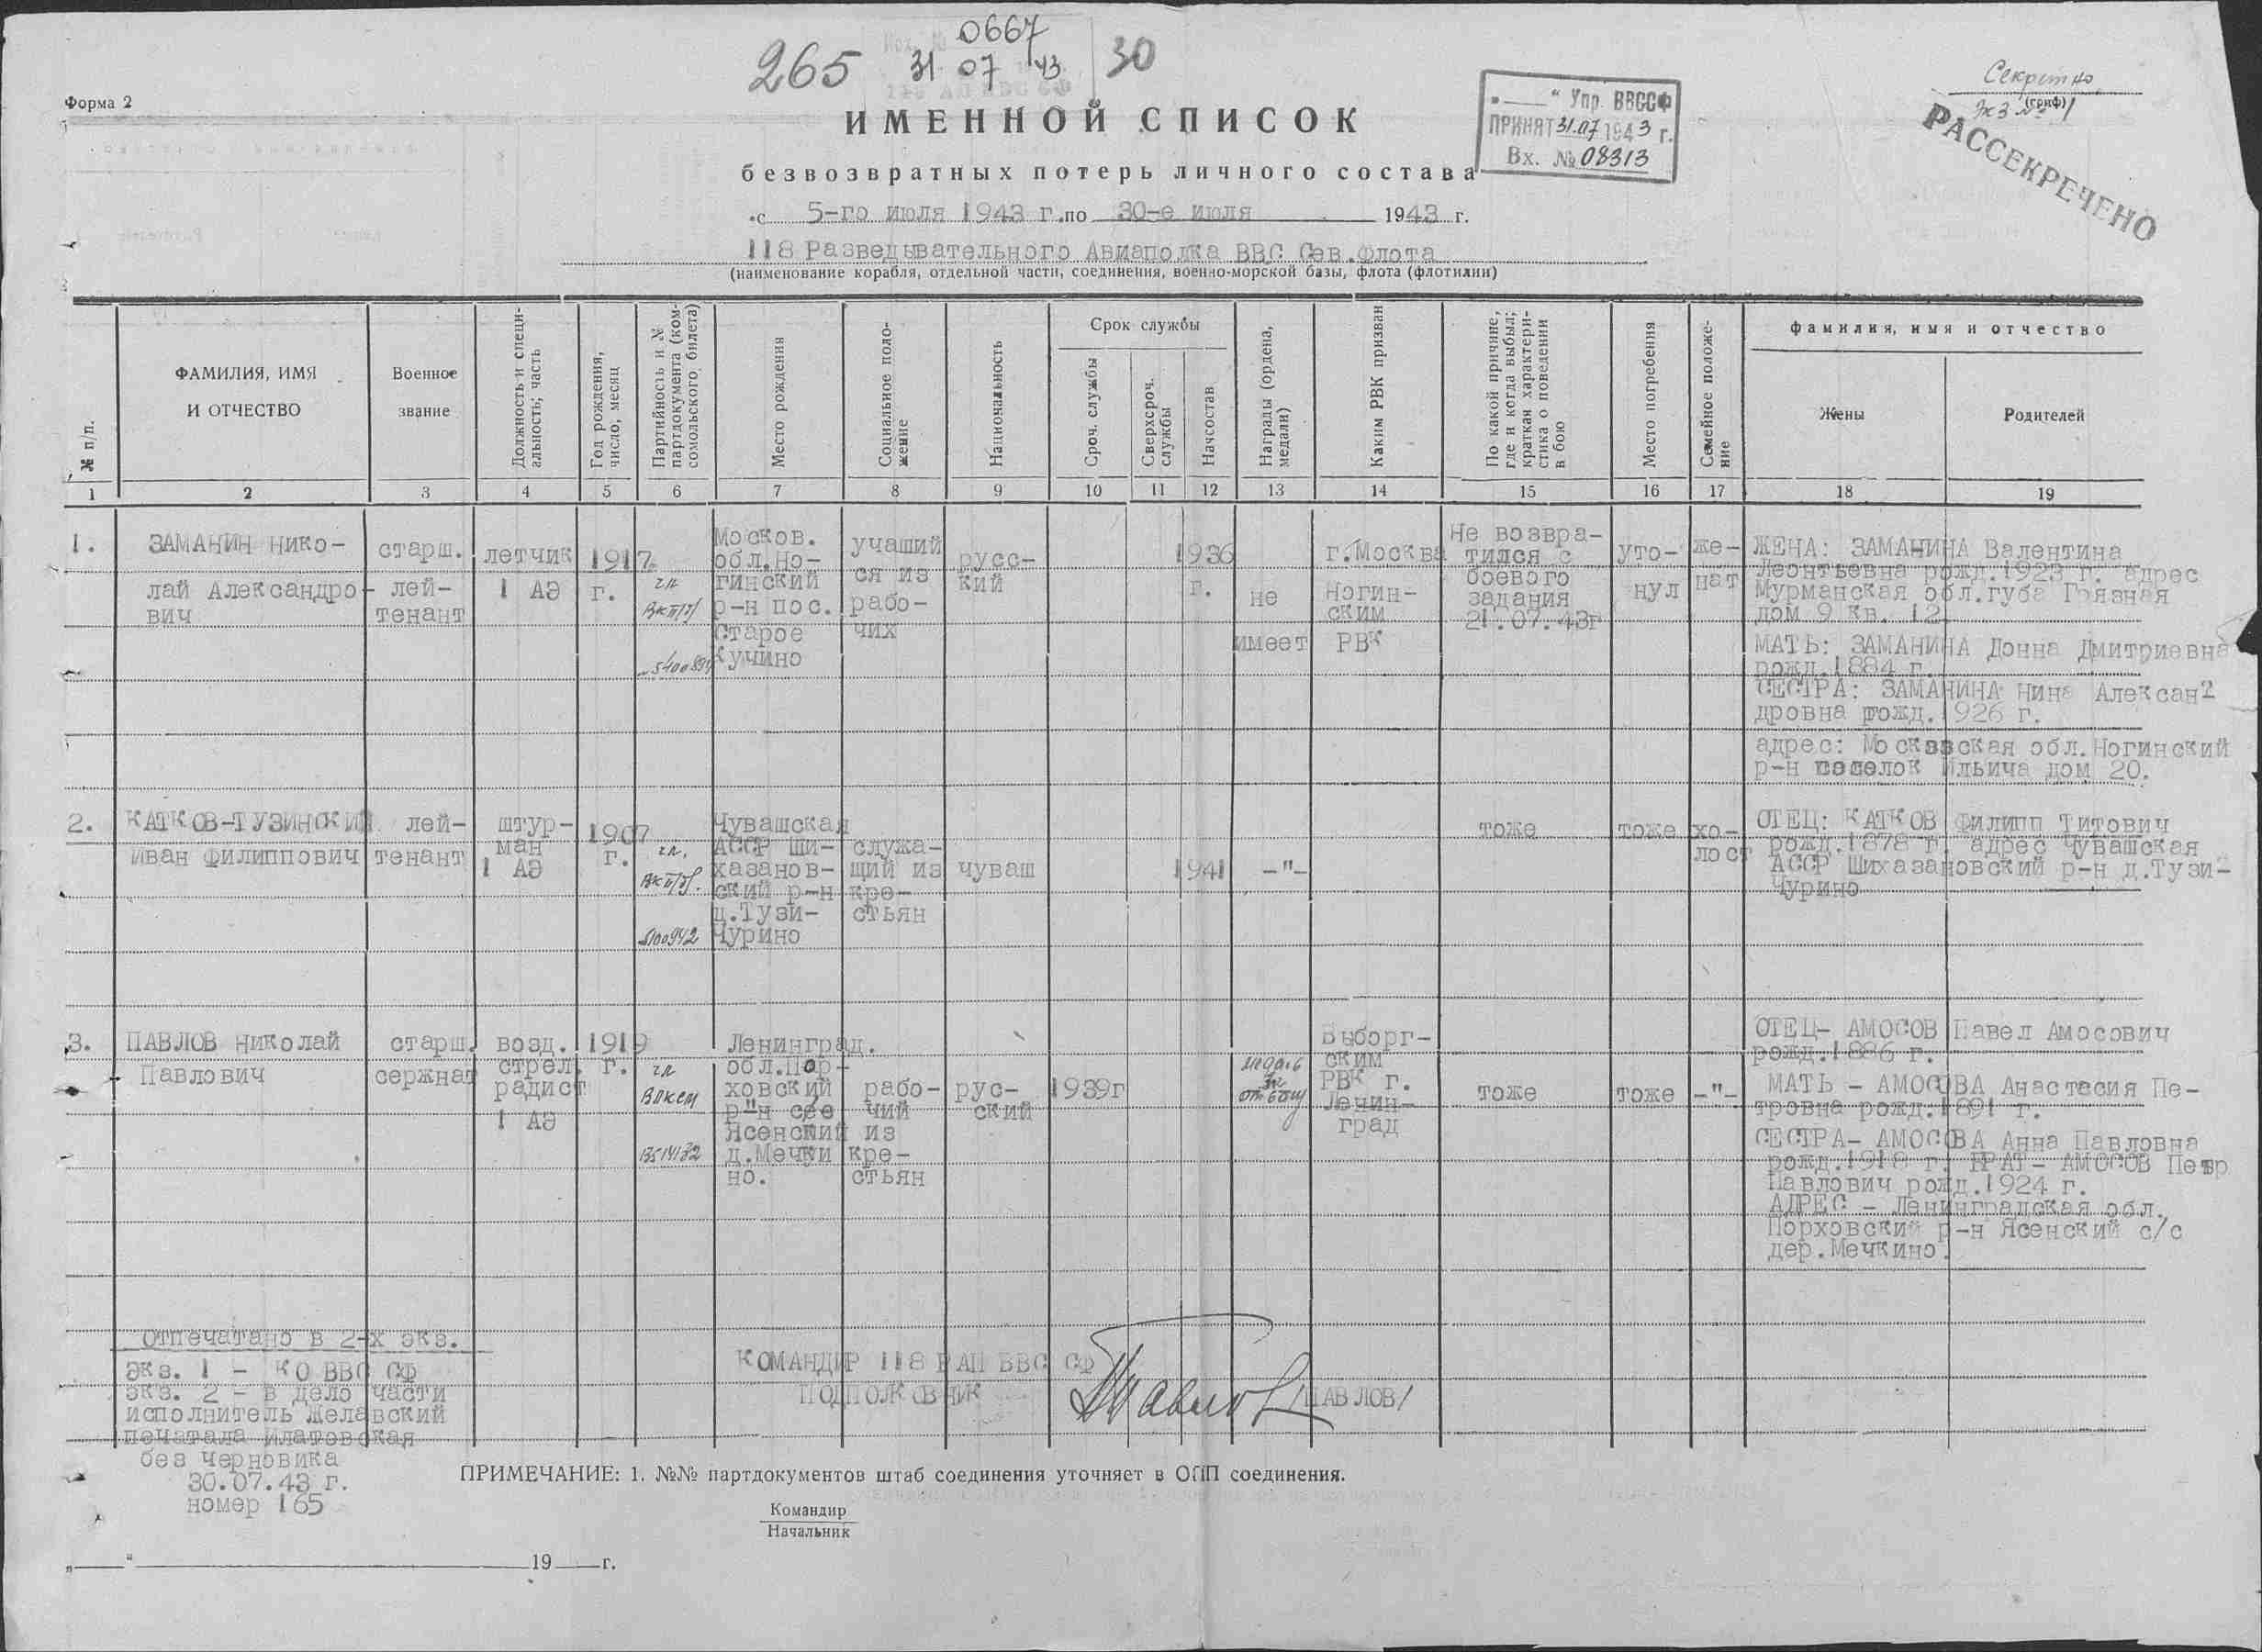 0667
265 31 07 43 30
Секретно
(гриф)
Экз № 1
РАССЕКРЕЧЕНО
Форма 2
"—" Упр. ВВССФ
ПРИНЯТ 31.07 1943 г.
Вх. № 08313
ИМЕННОЙ СПИСОК
безвозвратных потерь личного состава
с 5-го июля 1943 г. по 30-е июля 1943 г.
118 Разведывательного Авиаполка ВВС Сев.Флота
(наименование корабля, отдельной части, соединения, военно-морской базы, флота (флотилии)
№ п/п.
ФАМИЛИЯ, ИМЯ
И ОТЧЕСТВО
Военное
звание
Должность и специ-
альность; часть
Год рождения,
число, месяц
Партийность и №
партдокумента (ком-
сомольского билета)
Место рождения
Социальное поло-
жение
Национальность
Срок службы
Сроч. службы
Сверхсроч.
службы
Начсостав
Награды (ордена,
медали)
Каким РВК призван
По какой причине,
где и когда выбыл;
краткая характери-
стика о поведении
в бою
Место погребения
Семейное положе-
ние
фамилия, имя и отчество
Жены
Родителей
1 2 3 4 5 6 7 8 9 10 11 12 13 14 15 16 17 18 19
1.
ЗАМАНИН Нико-
лай Александро-
вич
старш.
лей-
тенант
летчик
1 АЭ
1917
г.
чл.
ВКП/б/
5400894
Москов.
обл.Но-
гинский
р-н пос.
Старое
Кучино
учащий
ся из
рабо-
чих
русс-
кий
1936
г.
не
имеет
г.Москва
Ногин-
ским
РВК
Не возвра-
тился с
боевого
задания
21.07.43г
уто-
нул
же-
нат
ЖЕНА: ЗАМАНИНА Валентина
Леонтьевна рожд.1923 г. адрес
Мурманская обл.губа Грязная
дом 9 кв. 12
МАТЬ: ЗАМАНИНА Донна Дмитриевна
рожд.1884 г.
СЕСТРА: ЗАМАНИНА Нина Алексан
дровна рожд.1926 г.
адрес: Московская обл.Ногинский
р-н поселок Ильича дом 20.
2.
КАТКОВ-ТУЗИНСКИЙ
Иван Филиппович
лей-
тенант
штур-
ман
1 АЭ
1907
г.
чл.
ВКП/б/.
5100942
Чувашская
АССР Ши-
хазанов-
ский р-н
д.Тузи-
Чурино
служа-
щий из
кре-
стьян
чуваш
1941
-"-
тоже
тоже
хо-
лост
ОТЕЦ: КАТКОВ Филипп Титович
рожд.1878 г. адрес Чувашская
АССР Шихазановский р-н д.Тузи-
Чурино
3.
ПАВЛОВ Николай
Павлович
старш.
сержнат
возд.
стрел.
радист
1 АЭ
1919
г.
чл
ВЛКСМ
13514132
Ленинград.
обл.Пор-
ховский
р"н сее
Ясенский
д.Мечки
но.
рабо-
чий
из
кре-
стьян
рус-
ский
1939г
медаль
за
отвагу
Выборг-
ским
РВК г.
Ленин-
град
тоже
тоже
-"-
ОТЕЦ- АМОСОВ Павел Амосович
рожд.1886 г.
МАТЬ - АМОСОВА Анастасия Пе-
тровна рожд.1891 г.
СЕСТРА- АМОСОВА Анна Павловна
рожд.1918 г. БРАТ- АМОСОВ Петр
Павлович рожд.1924 г.
АДРЕС - Ленинградская обл.
Порховский р-н Ясенский с/с
дер.Мечкино.
Отпечатано в 2-х экз.
экз. 1 - КО ВВС СФ
экз. 2 - в дело части
исполнитель Желавский
печатала Илатовская
без черновика
30.07.43 г.
номер 165
КОМАНДИР 118 РАП ВВС СФ
ПОДПОЛКОВНИК Павлов /ПАВЛОВ/
ПРИМЕЧАНИЕ: 1. №№ партдокументов штаб соединения уточняет в ОПП соединения.
Командир
Начальник
"—" 19 г.